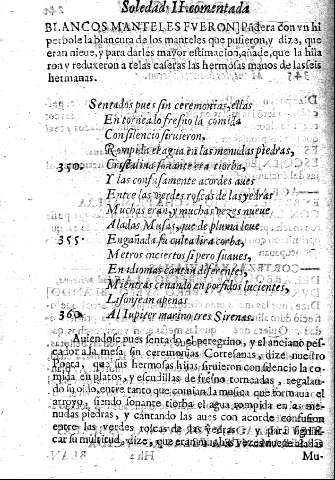 Soledad II. comentada
BLANCOS MANTELES FVERON] Pōdera con vn hi
perbole la blancura de los manteles que pusieron, y dize, que
eran nieve, y para darles mayor estimacion, añade, que la hila
ron y reduxeron a telas caseras las hermosas manos de las seis
hermanas.
Sentados pues sin ceremonias, ellas
En torneado fresno la comida
Con silencio siruieron.
Rompida el agua en las menudas piedras,
350. Cristalina sonante era tiorba,
Y las confusamente acordes aues
Entre las verdes roscas de las yedras
Muchas eran, y muchas vezes nueue
Aladas Musas, que de pluma leue
355. Engañada su culta lira corba,
Metros inciertos si pero suaues,
En idiomas cantan diferentes,
Mientras cenando en porfidos lucientes,
Lisonjean apenas
360. Al Iupiter marino tres Sirenas.
Auiendose pues sentado el peregrino, y el anciano pes
cador a la mesa sin ceremonias Cortesanas, dize nuestro
Poeta, que sus hermosas hijas siruieron con silencio la co
mida en platos, y escudillas de fresno torneadas, regalan-
do el oìdo, entre tanto que comian la musica que formaua el
arroyo, siendo sonante tiorba el agua rompida en las me-
nudas piedras, y cantando las aues con acorde confusion
entre las verdes roscas de las yedras, y para signifi-
car su multitud, dize, que eran muchas vezes nueue aladas
Mu-